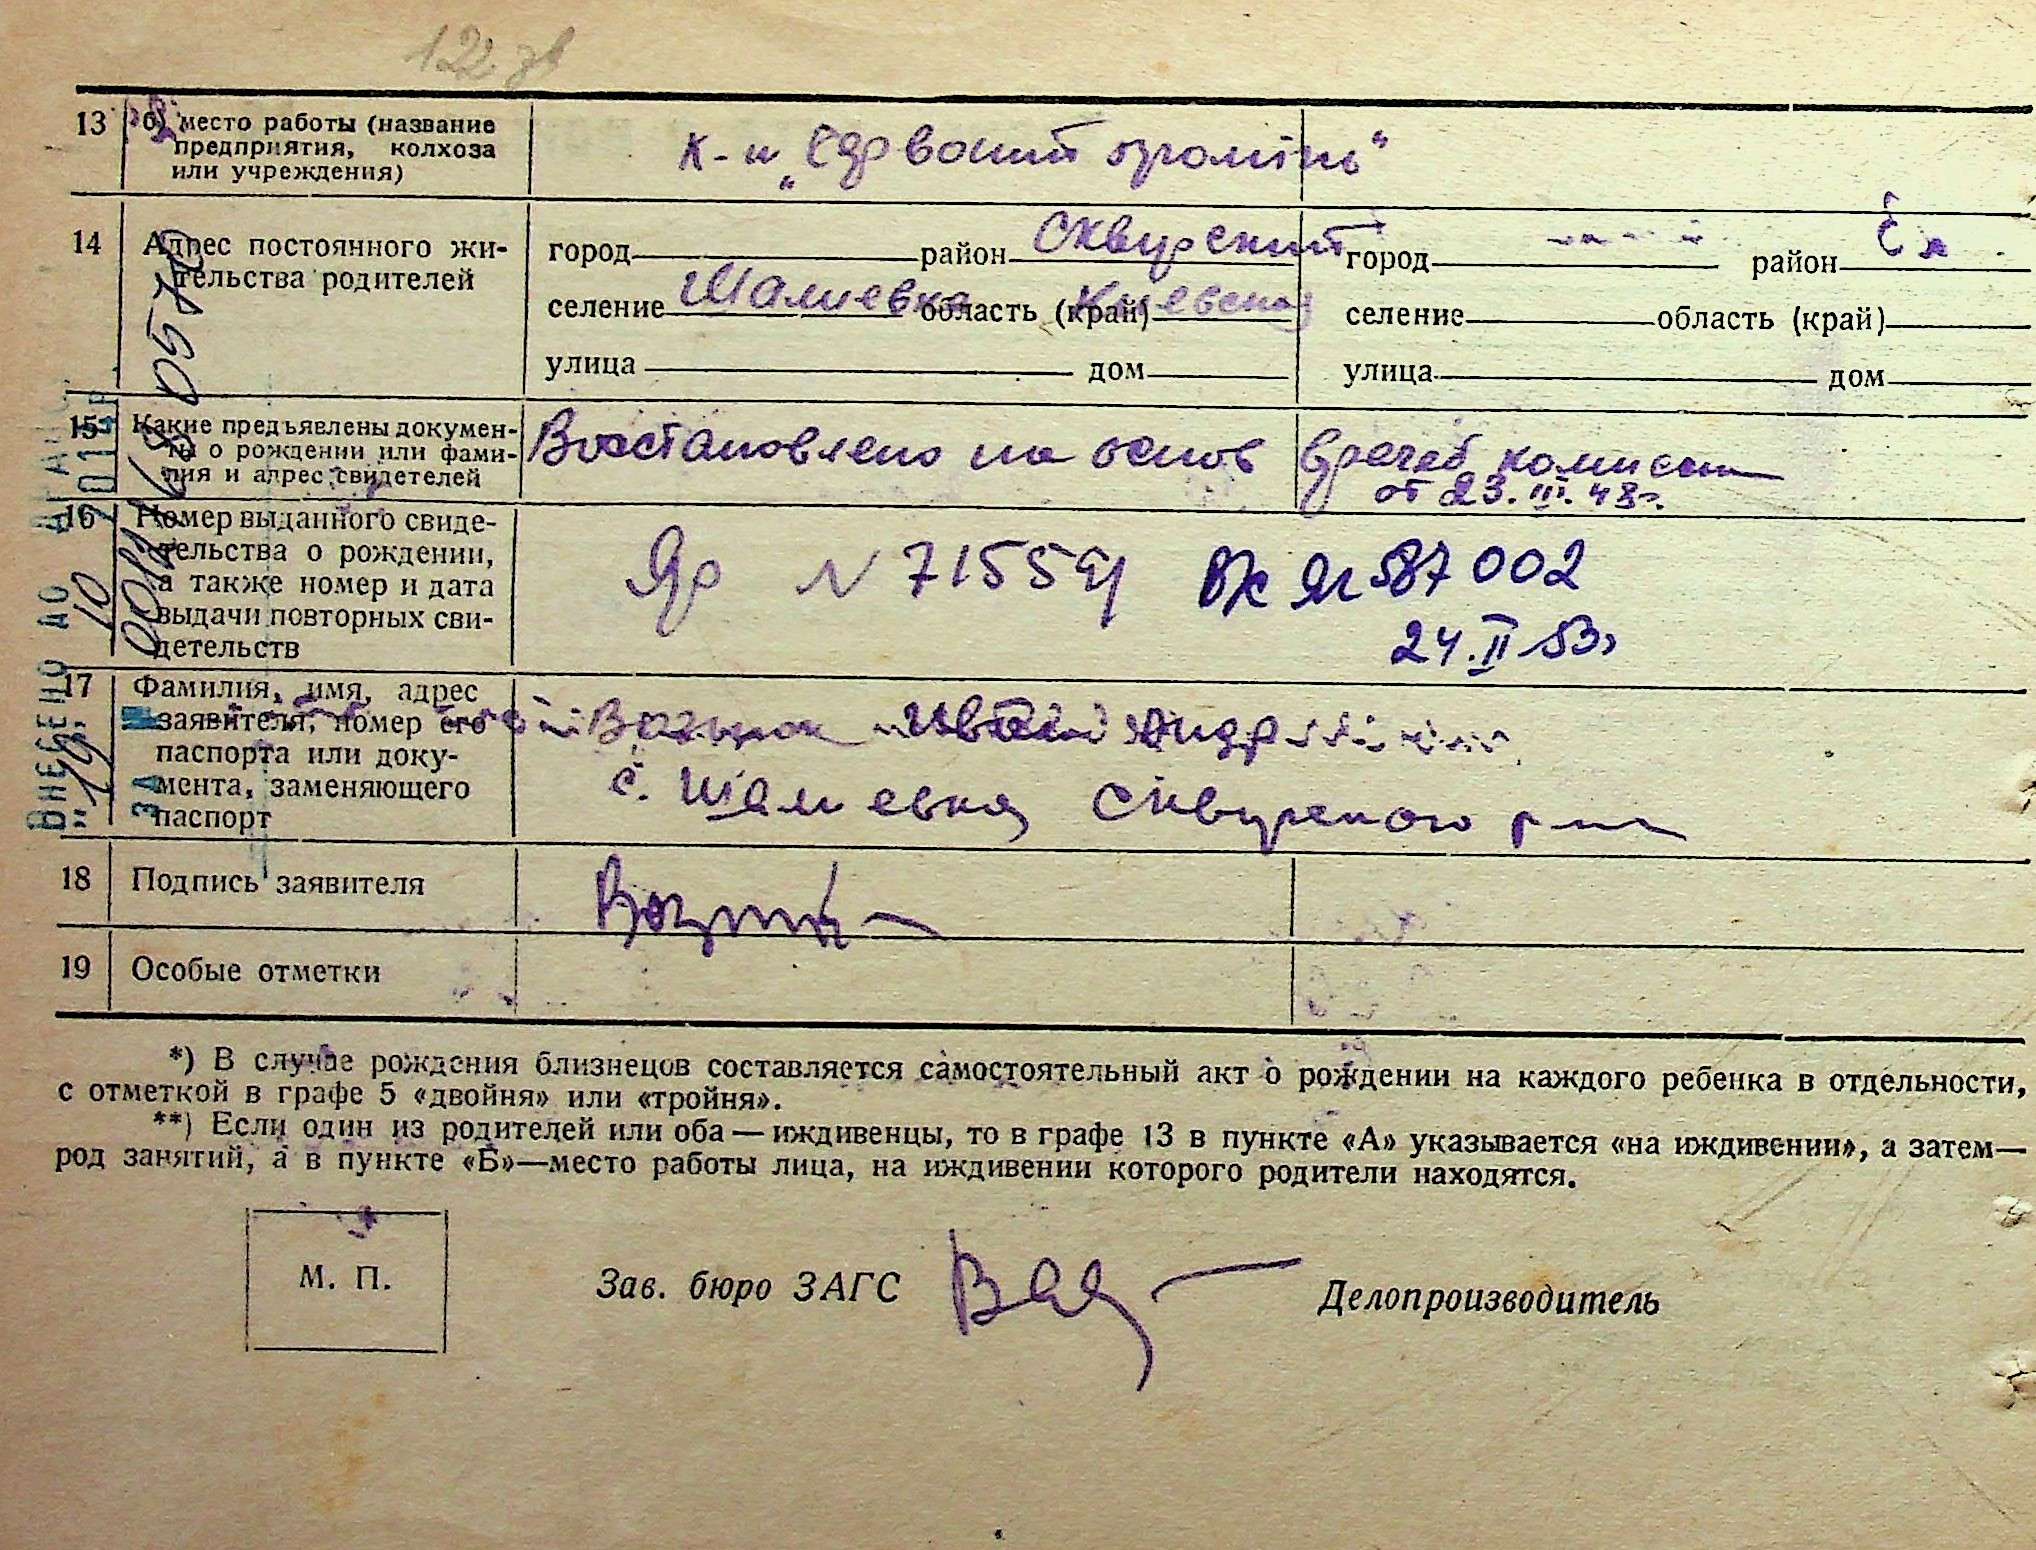 122 зв
13 б) место работы (название
предприятия, колхоза
или учреждения)
к-п „Єдр восит промінь"
14 Адрес постоянного жи-
тельства родителей
город район Сквирский город район
селение Шалиевка область (край) Киевская селение область (край)
улица дом улица дом
15 Какие предъявлены докумен-
ты о рождении или фами-
лия и адрес свидетелей
Восстановлено на основ врачеб комиссии
от 23.III.48г.
16 Номер выданного свиде-
тельства о рождении,
а также номер и дата
выдачи повторных сви-
детельств
N 71554 587002
24.II 53г
17 Фамилия, имя, адрес
заявителя, номер его
паспорта или доку-
мента, заменяющего
паспорт
Иван
с. Шалиевка Сквирского р-на
18 Подпись заявителя
19 Особые отметки
ВНЕСЕНО ДО ДРАЦС
"19" 10 201
ЗА № 00117680570
*) В случае рождения близнецов составляется самостоятельный акт о рождении на каждого ребенка в отдельности,
с отметкой в графе 5 «двойня» или «тройня».
**) Если один из родителей или оба — иждивенцы, то в графе 13 в пункте «А» указывается «на иждивении», а затем—
род занятий, а в пункте «Б»—место работы лица, на иждивении которого родители находятся.
М. П.
Зав. бюро ЗАГС Делопроизводитель